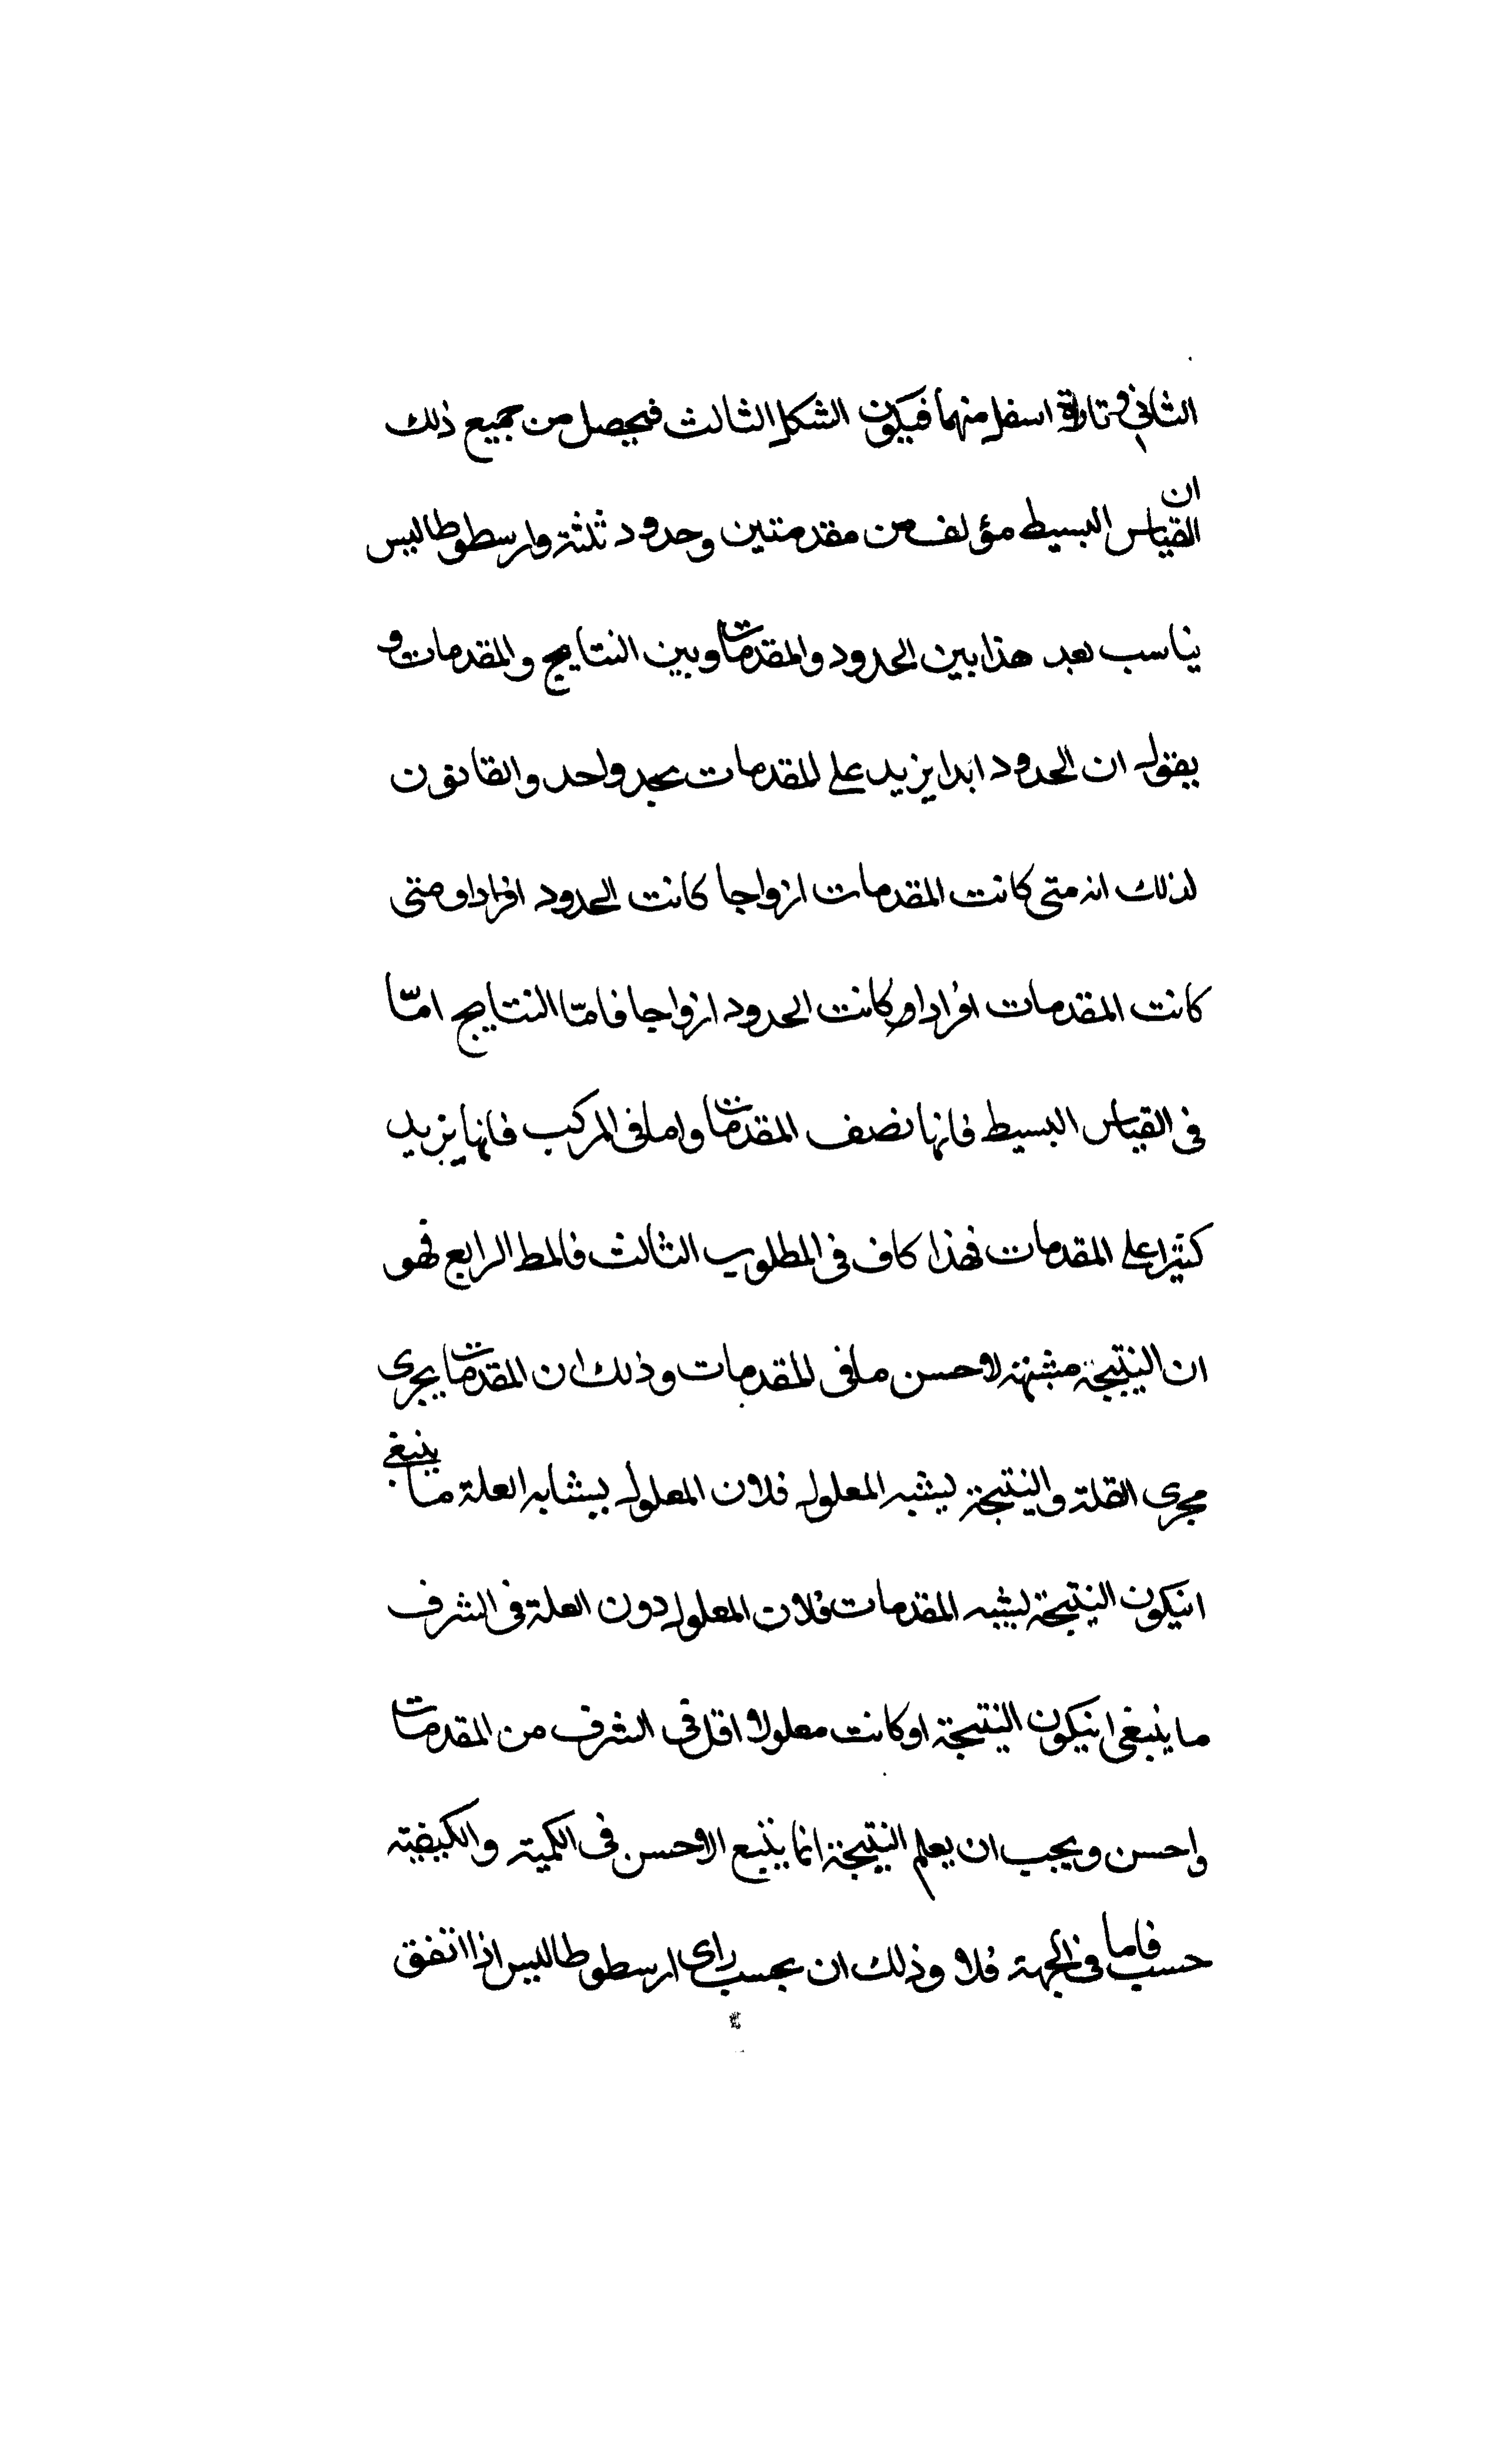 الثاني وتارة اسفل منهما فيكون الشكل الثالث فيحصل من جميع ذلك
ان القياس البسيط مؤلف من مقدمتين وحدود ثلثة وارسطوطاليس
يناسب بعد هذا بين الحدود والمقدمات وبين النتايج والمقدمات و
يقول ان الحدود ابدا يزيد على المقدمات بحد واحد والقانون
لذلك انه متى كانت المقدمات ازواجا كانت الحدود افرادا ومتى
كانت المقدمات افرادا كانت الحدود ازواجا فامّا النتايج امّا
فى القياس البسيط فانها نصف المقدمات واما فى المركب فانها يزيد
كثيرا على المقدمات فهذا كاف فى المطلوب الثالث فالمط الرابع فهو
ان النتيجة مشبهة لاحسن ما فى المقدمات وذلك ان المقدمات يجرى
مجرى العلة والنتيجة يشبه المعلول فلان المعلول يشابه العلة ما ينبغى
انيكون النتيجة يشبه المقدمات فلان المعلول دون العلة فى الشرف
ما ينبغى انيكون النتيجة اوكانت معلولا اقل فى الشرف من المقدمات
واحسن ويجب ان يعلم النتيجة انما يتبع الاحسن فى الكمية والكيفية
حسب فاما فى الجهة فلا وذلك ان بحسب راى ارسطوطاليس اذا اتفق